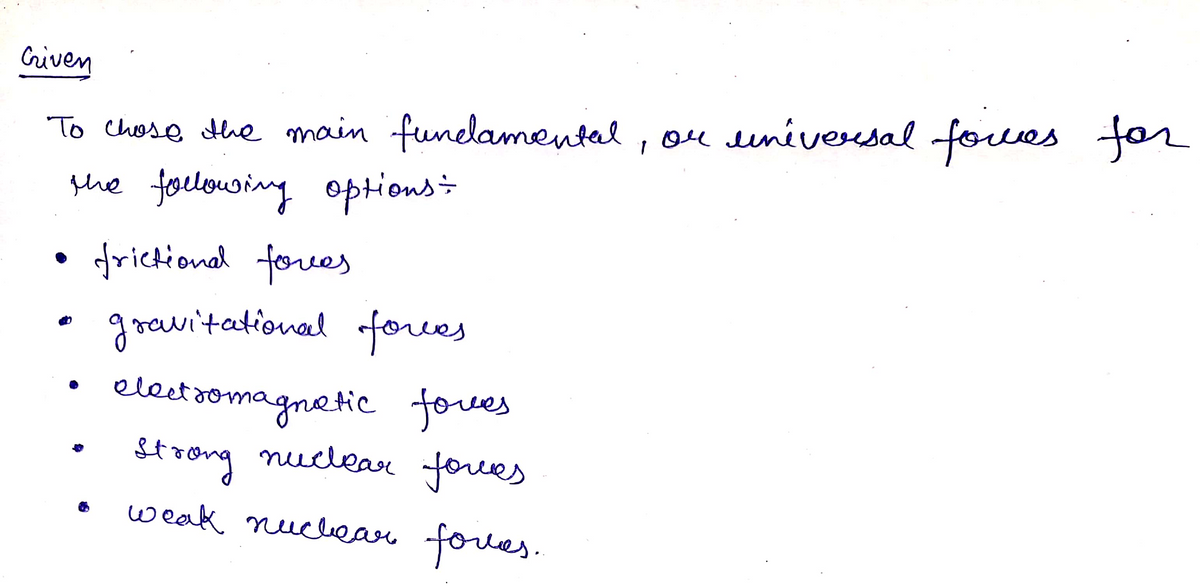 Given
To chose the main fundamental, or universal forces for
the following options:
• frictional forces
• gravitational forces
• electromagnetic forces
• strong nuclear forces
• weak nuclear forces.